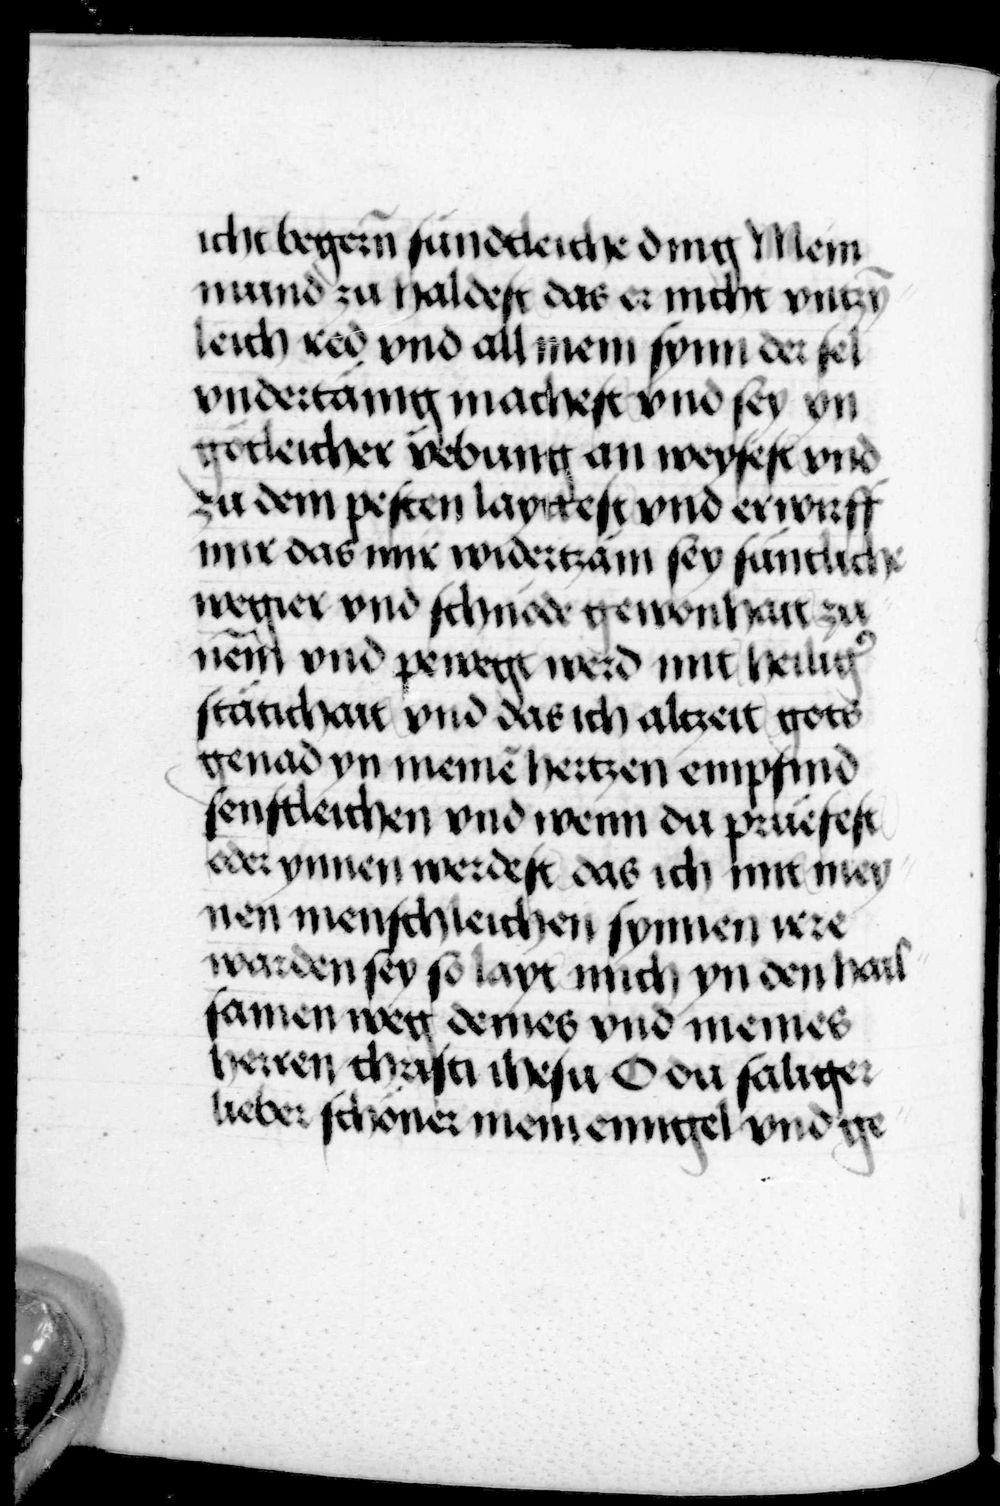 icht begerñ sündtleiche ding Mein
mund zu haldest das er nicht vntzÿ
leich red vnd all mein synn der sel
vndertänig machest vnd sey yn
götleicher v̈ebung an weysest vnd
zu dem pesten layttest vnd erwirff
mir das mir widertzäm sey süntliche
wegier vnd schnöde gewonhait zu
nem̃ vnd pewegt werd mit heiligꝰ
stätichait vnd das ich altzeit gots
genad yn meinē hertzen empfind
senftleichen vnd wenn du prüefest
oder ynnen werdest das ich mit mey
nen menschleichen synnen irre
warden sey so layt mich yn den hail
samen weg deines vnd meines
herren christi ihesu O du säliger
lieber schöner mein enngel vnd ge